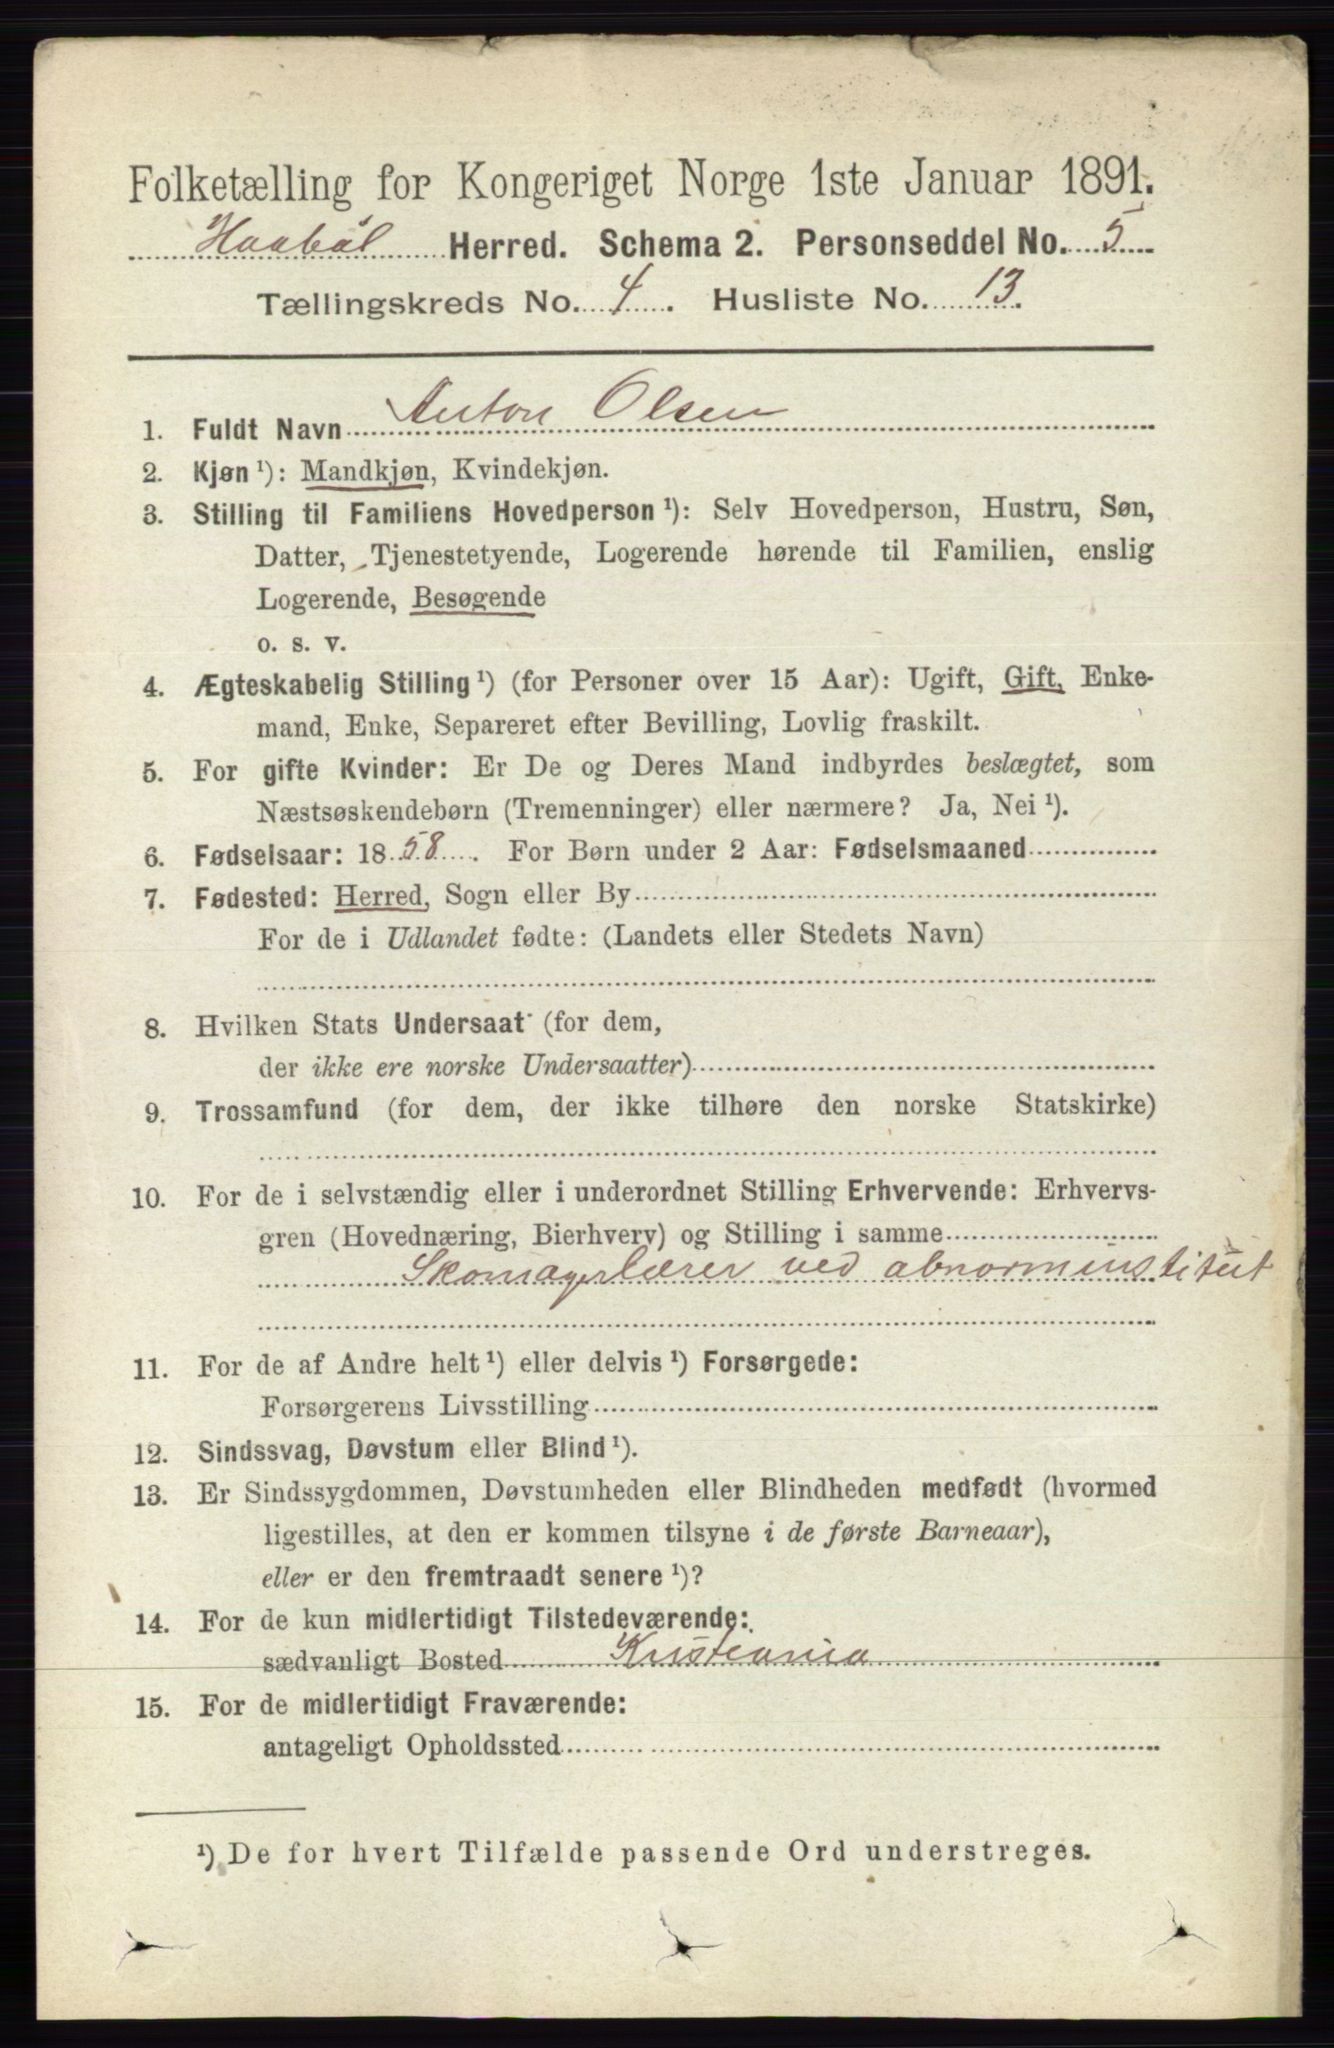 Folketælling for Kongeriget Norge 1ste Januar 1891.
Haabøl Herred. Schema 2. Personseddel No. 5
Tællingskreds No. 4. Husliste No. 13.
1. Fuldt Navn Anton Olsen
2. Kjøn ¹): Mandkjøn, Kvindekjøn.
3. Stilling til Familiens Hovedperson ¹): Selv Hovedperson, Hustru, Søn,
Datter, Tjenestetyende, Logerende hørende til Familien, enslig
Logerende, Besøgende
o. s. v.
4. Ægteskabelig Stilling ¹) (for Personer over 15 Aar): Ugift, Gift, Enke-
mand, Enke, Separeret efter Bevilling, Lovlig fraskilt.
5. For gifte Kvinder: Er De og Deres Mand indbyrdes beslægtet, som
Næstsøskendebørn (Tremenninger) eller nærmere? Ja, Nei ¹).
6. Fødselsaar: 1858. For Børn under 2 Aar: Fødselsmaaned
7. Fødested: Herred, Sogn eller By
For de i Udlandet fødte: (Landets eller Stedets Navn)
8. Hvilken Stats Undersaat (for dem,
der ikke ere norske Undersaatter)
9. Trossamfund (for dem, der ikke tilhøre den norske Statskirke)
10. For de i selvstændig eller i underordnet Stilling Erhvervende: Erhvervs-
gren (Hovednæring, Bierhverv) og Stilling i samme
Skomagerlærer ved abnorminstitut
11. For de af Andre helt ¹) eller delvis ¹) Forsørgede:
Forsørgerens Livsstilling
12. Sindssvag, Døvstum eller Blind ¹).
13. Er Sindssygdommen, Døvstumheden eller Blindheden medfødt (hvormed
ligestilles, at den er kommen tilsyne i de første Barneaar),
eller er den fremtraadt senere ¹)?
14. For de kun midlertidigt Tilstedeværende:
sædvanligt Bosted Kristiania
15. For de midlertidigt Fraværende:
antageligt Opholdssted
¹) De for hvert Tilfælde passende Ord understreges.